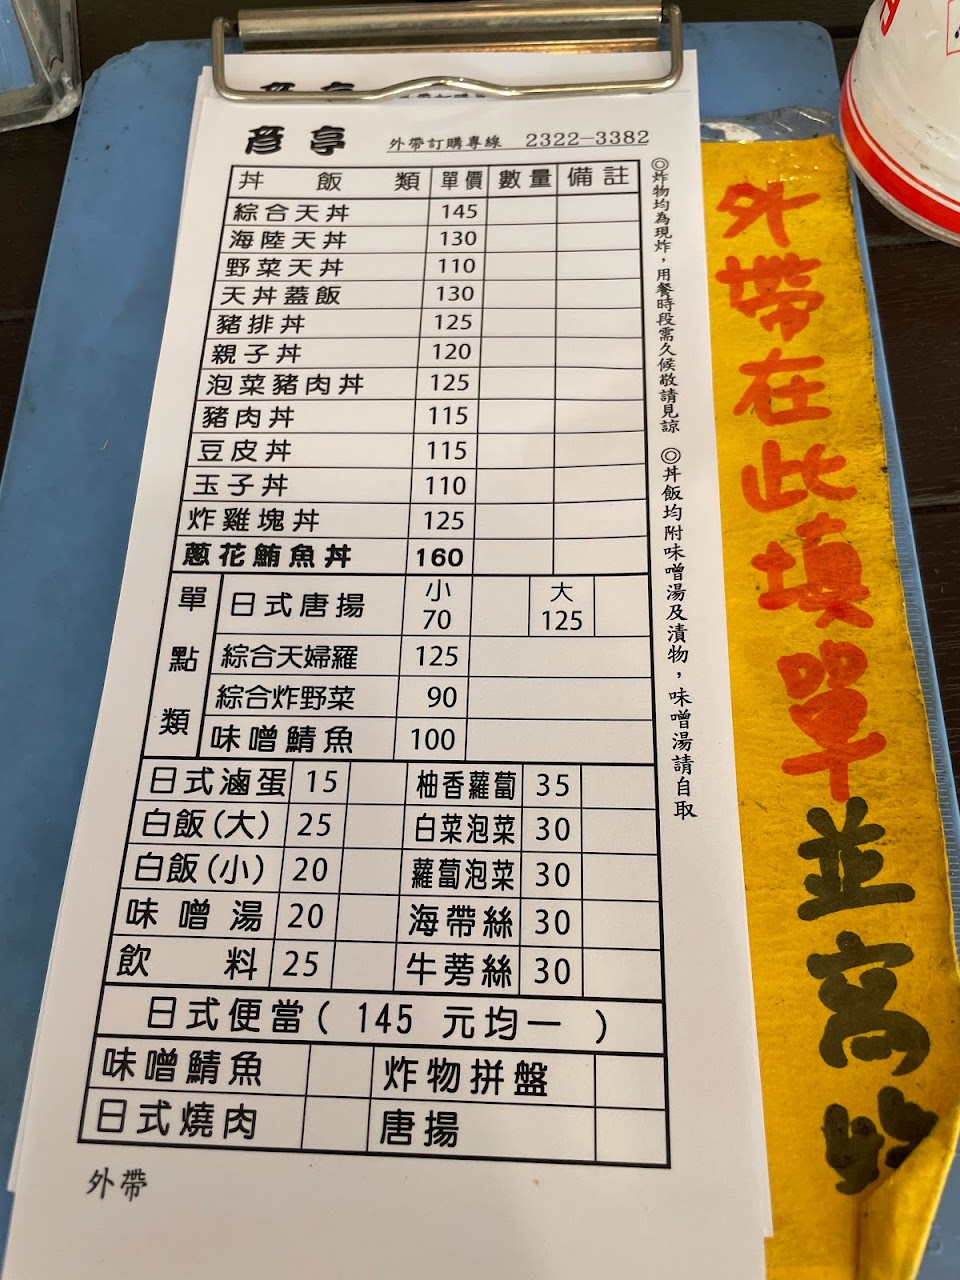 彦亭 外帶訂購專線 2322-3382
丼飯類 單價 數量 備註
綜合天丼 145
海陸天丼 130
野菜天丼 110
天丼蓋飯 130
豬排丼 125
親子丼 120
泡菜豬肉丼 125
豬肉丼 115
豆皮丼 115
玉子丼 110
炸雞塊丼 125
蔥花鮪魚丼 160
單點類
日式唐揚 小 70 大 125
綜合天婦羅 125
綜合炸野菜 90
味噌鯖魚 100
日式滷蛋 15 柚香蘿蔔 35
白飯(大) 25 白菜泡菜 30
白飯(小) 20 蘿蔔泡菜 30
味噌湯 20 海帶絲 30
飲料 25 牛蒡絲 30
日式便當( 145 元均一 )
味噌鯖魚 炸物拼盤
日式燒肉 唐揚
外帶
◎炸物均為現炸，用餐時段需久候敬請見諒 ◎丼飯均附味噌湯及漬物，味噌湯請自取
外帶在此填單並寫